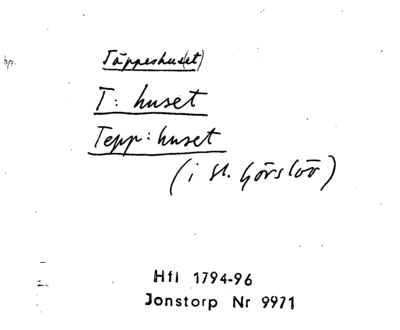 Täppeshus(et)
T: huset
Tepp: huset
(i st. Görslöv)
Hfl 1794-96
Jonstorp Nr 9971